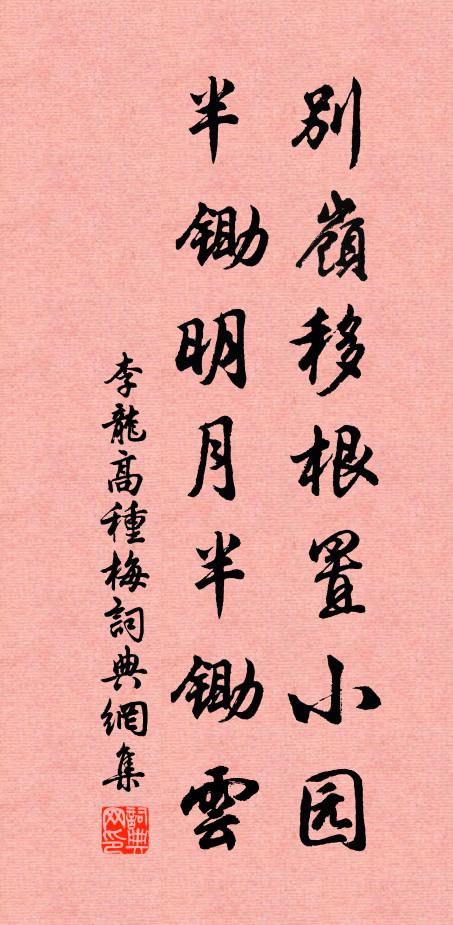 別嶺移根置小园
半鋤明月半鋤雲
李龍高種梅詞典網集
詞典网印